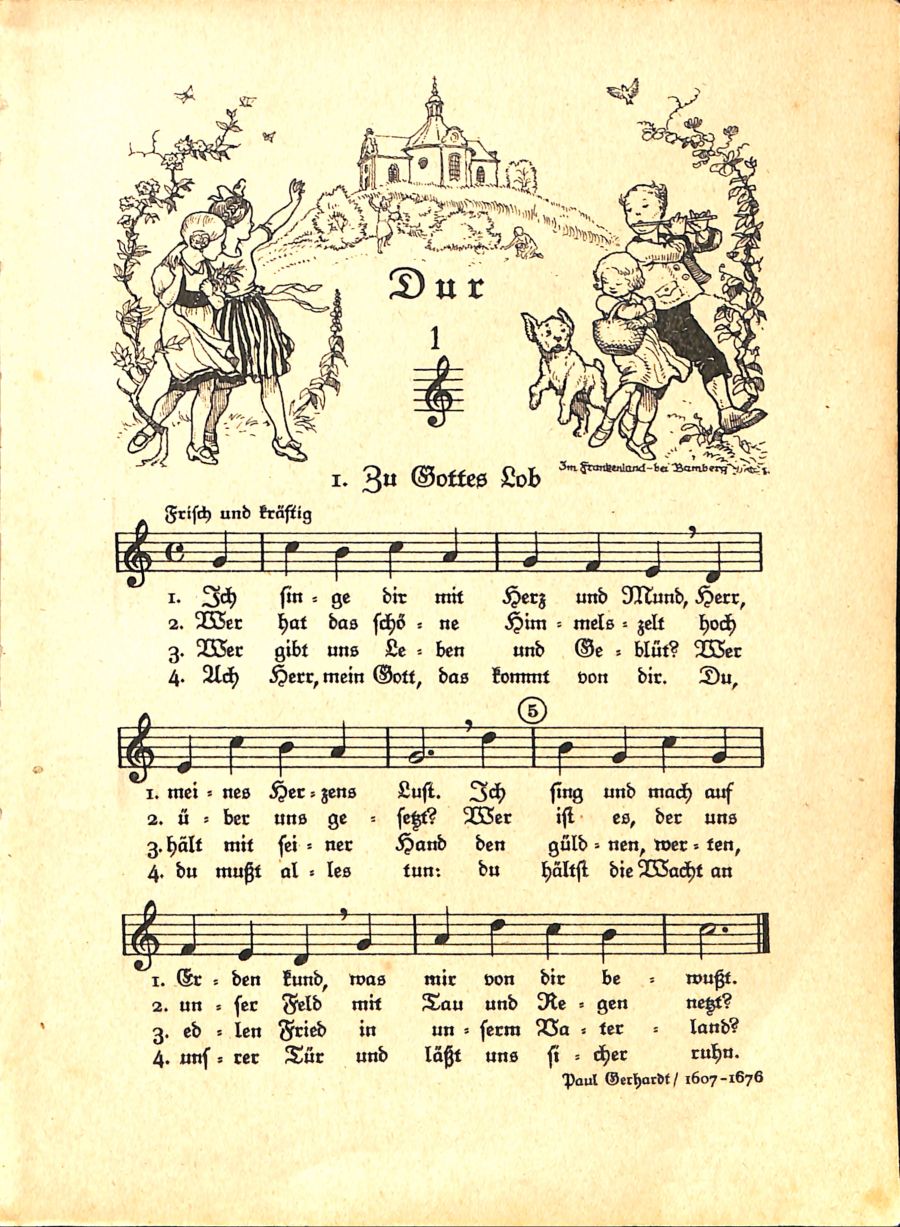 Dur
1
1. Zu Gottes Lob
Im Frankenland - bei Bamberg
Frisch und kräftig
1. Ich sin - ge dir mit Herz und Mund, Herr,
2. Wer hat das schö - ne Him - mels - zelt hoch
3. Wer gibt uns Le - ben und Ge - blüt? Wer
4. Ach Herr, mein Gott, das kommt von dir. Du,
5
1. mei - nes Her - zens Lust. Ich sing und mach auf
2. ü - ber uns ge - setzt? Wer ist es, der uns
3. hält mit sei - ner Hand den güld - nen, wer - ten,
4. du mußt al - les tun: du hältst die Wacht an
1. Er - den kund, was mir von dir be - wußt.
2. un - ser Feld mit Tau und Re - gen netzt?
3. ed - len Fried in un - serm Va - ter - land?
4. uns - rer Tür und läßt uns si - cher ruhn.
Paul Gerhardt / 1607-1676